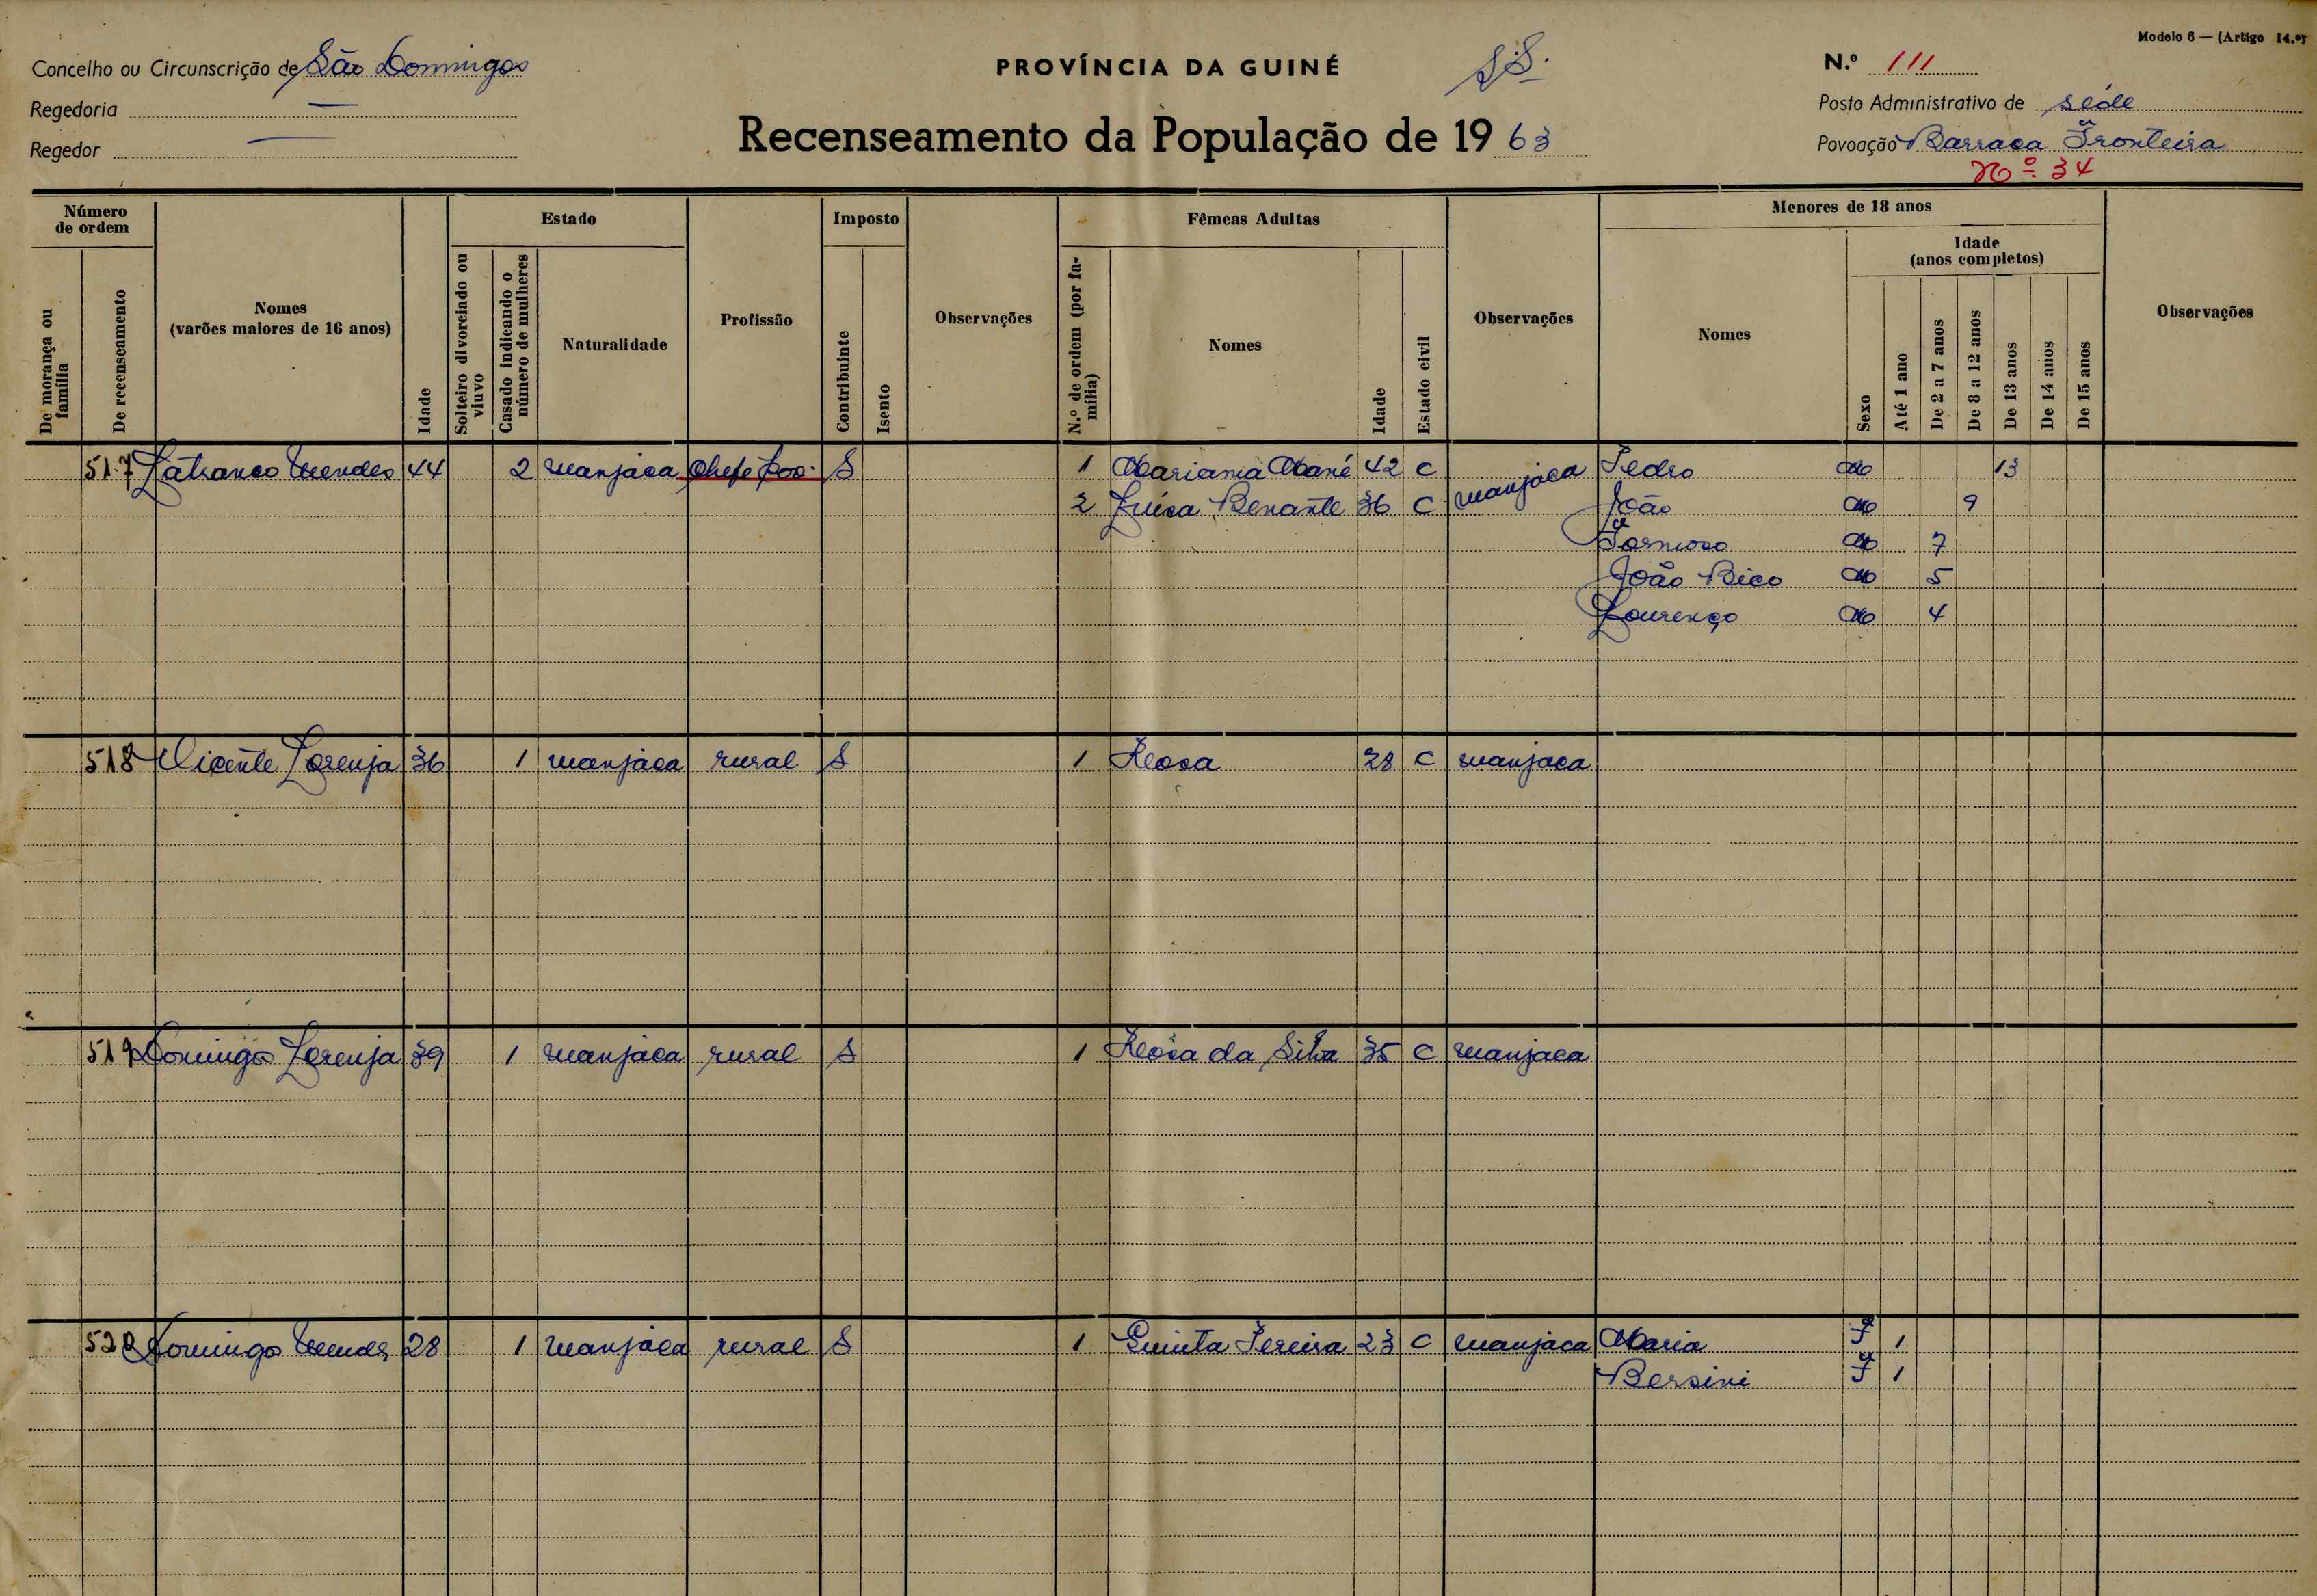 Modelo 6 — (Artigo 14.º)
Concelho ou Circunscrição de São Domingos
PROVÍNCIA DA GUINÉ
SS.
N.º 111
Regedoria —
Posto Administrativo de séde
Regedor —
Recenseamento da População de 1963
Povoação Barraca Fronteira
Nº. 34
Número de ordem
Estado
Imposto
Fêmeas Adultas
Menores de 18 anos
Idade (anos completos)
De morança ou família
De recenseamento
Nomes (varões maiores de 16 anos)
Idade
Solteiro divorciado ou viuvo
Casado indicando o número de mulheres
Naturalidade
Profissão
Contribuinte
Isento
Observações
N.º de ordem (por família)
Nomes
Idade
Estado civil
Observações
Nomes
Sexo
Até 1 ano
De 2 a 7 anos
De 8 a 12 anos
De 13 anos
De 14 anos
De 15 anos
Observações
517 Mendes 44 2 manjaca Chefe S 1 Mariama Mané 42 C manjaca Pedro M 13
2 Luísa Benante 36 C João M 9
Formoso M 7
João Bico M 5
Lourenço M 4
518 Vicente Lorenja 36 1 manjaca rural S 1 Rosa 28 C manjaca
519 Domingos Lorenja 39 1 manjaca rural S 1 Rosa da Silva 35 C manjaca
520 Domingos Mendes 28 1 manjaca rural S 1 Quinta Pereira 23 C manjaca Maria F 1
Bersini F 1